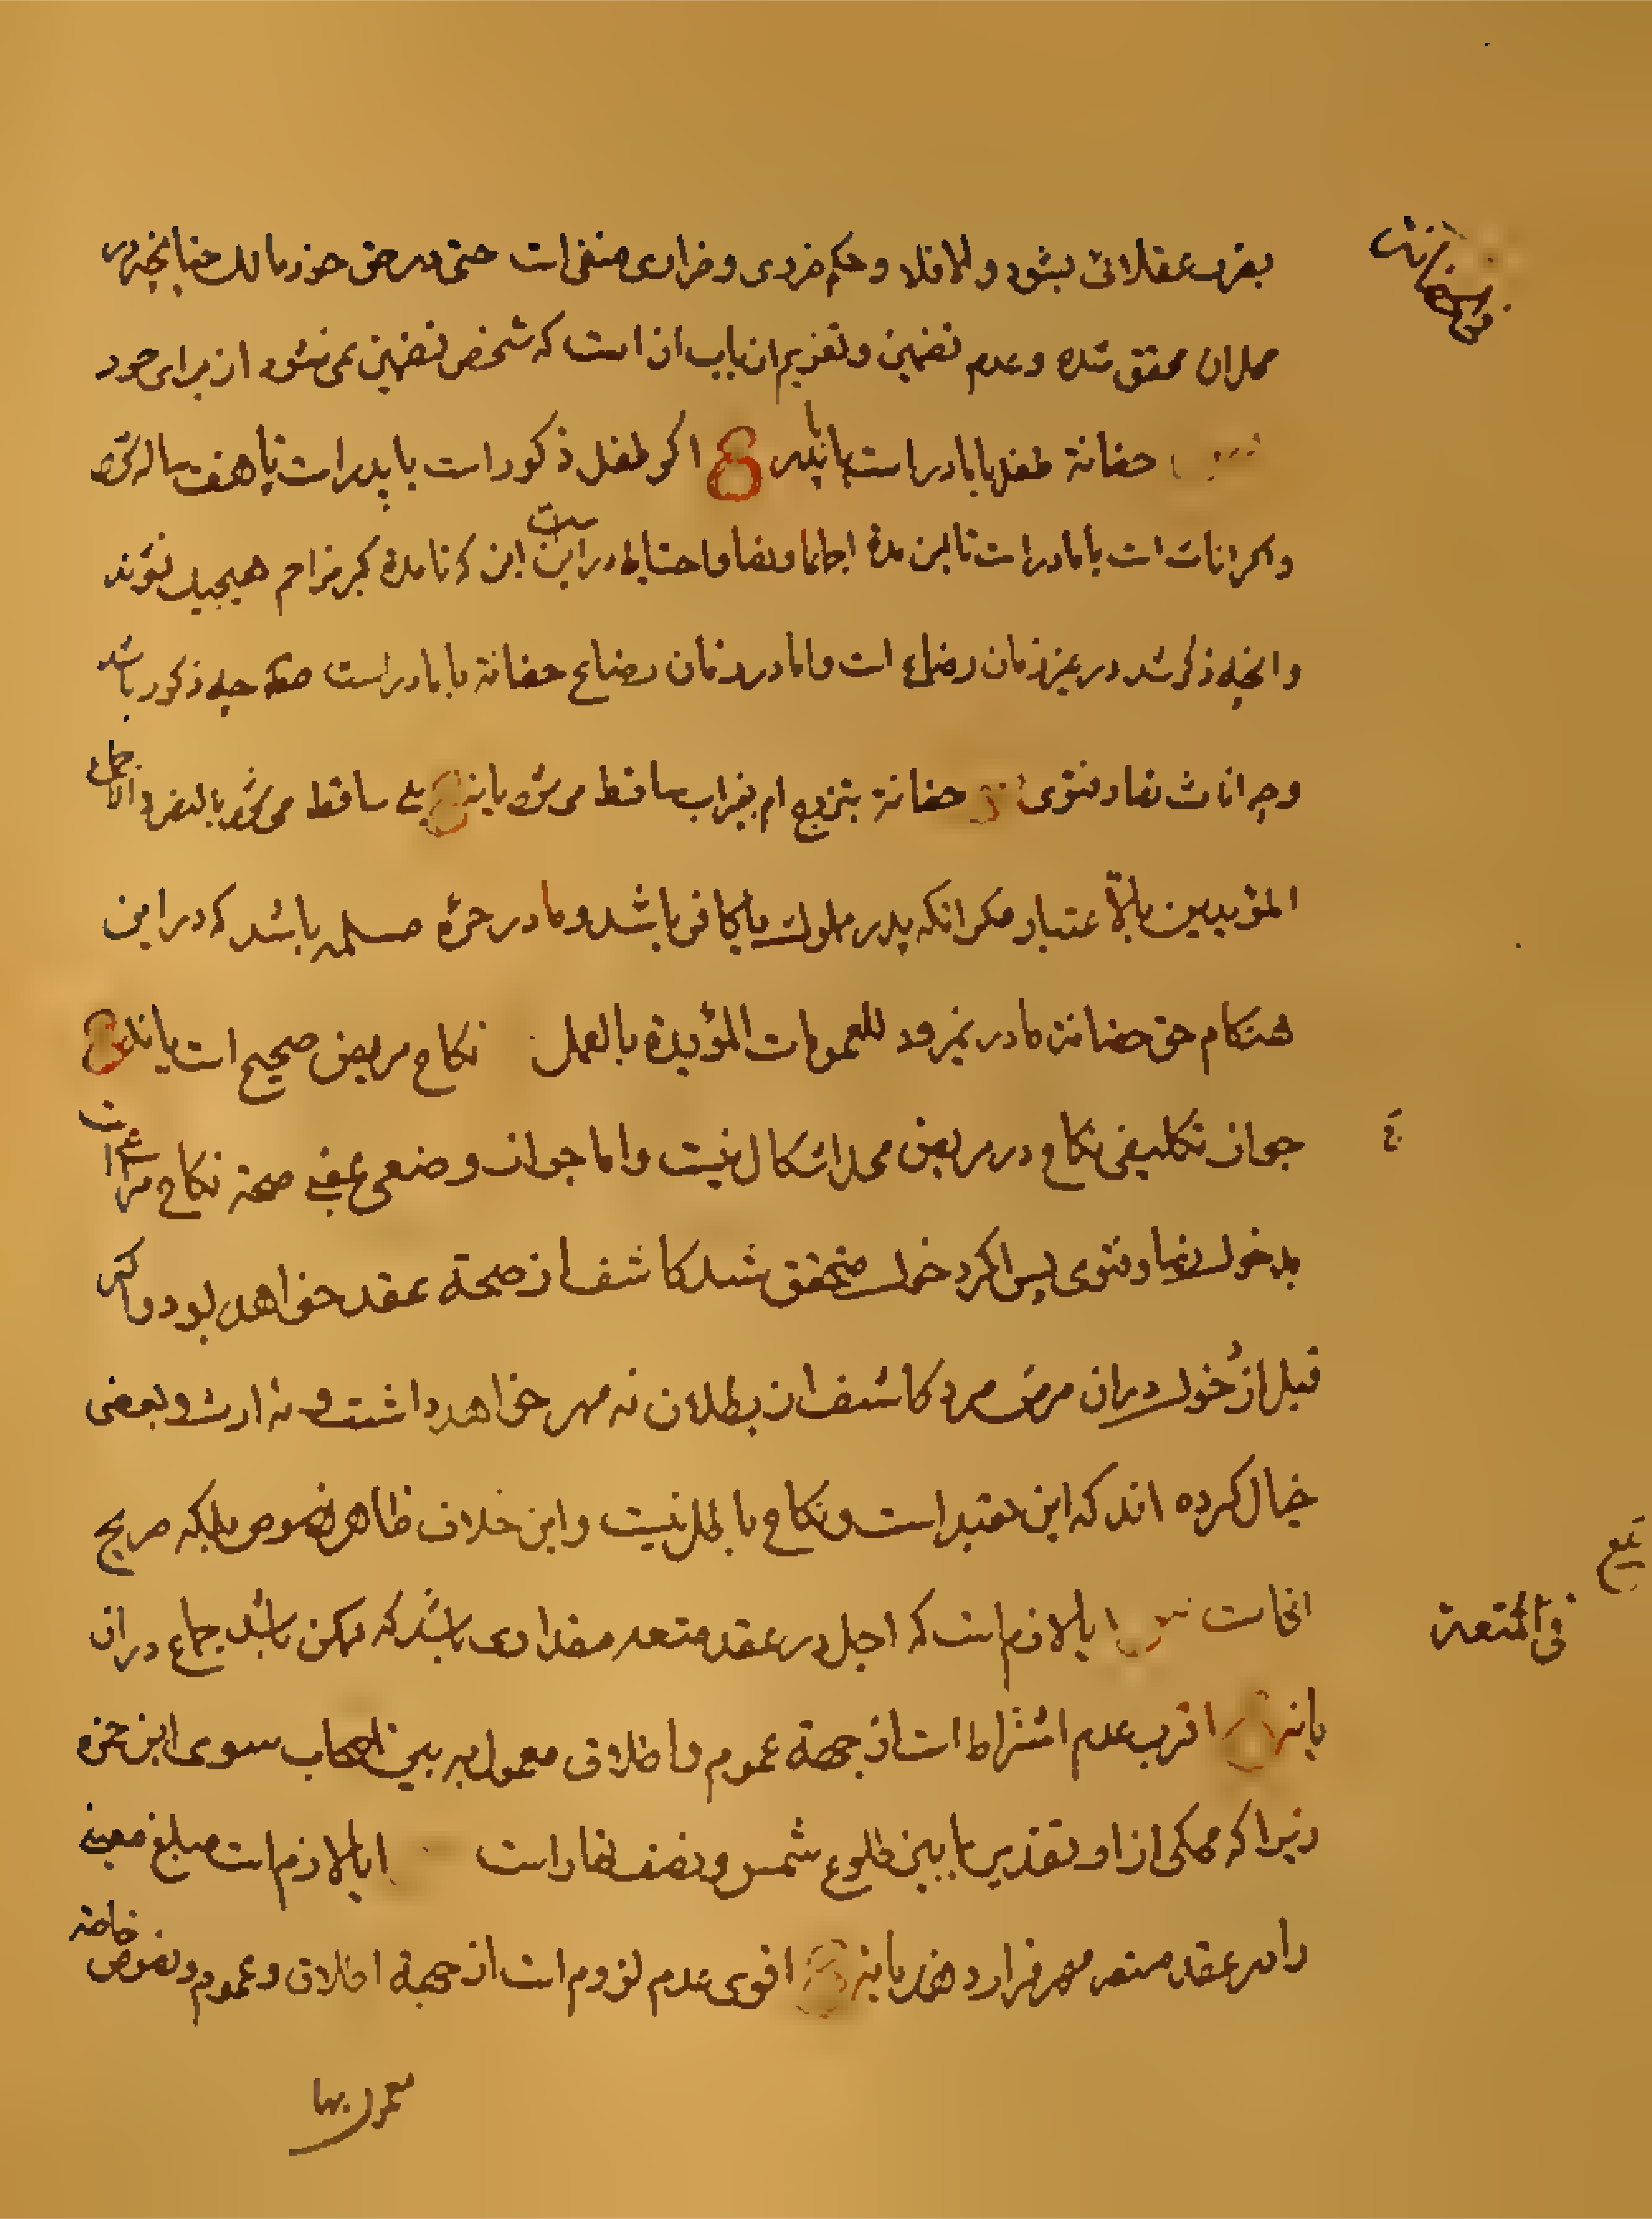 فی الحضانة
بغرض عقلائی بشود والا فلا و حکم ضردی و ضراری منفی است حتی در حق خود مالک چنانچه در
محلش محقق شده و عدم تضمین و تغریم از باب ان است که شخص تضمین نمی شود از برای خود
حضانة طفل با مادر است یا با پدر اکر طفل ذکور است با پدر است تا هفت سالکی
واکر اناث است با مادر است تا این مدة در این این که تا مدة کبر مزاحم هیچیک نشوند
وانچه ذکر شد در غیر زمان رضاع است واما در زمان رضاع حضانة با مادر است چه ذکور باشد
و چه اناث نصا و فتوی حضانة بتزویج ام بغیر اب ساقط می شود یا نه بلی ساقط می شود بالنص و الاجماع
المؤیدین بالاعتبار مکر انکه پدر مملوک یا کافر باشد و مادر حره مسلمه باشد که در این
هنکام حق حضانة مادر نمیرود للعمومات المؤیدة بالعمل نکاح مریض صحیح است یا نه
جواز تکلیفی نکاح در مریض محل اشکال نیست واما جواز وضعی یعنی صحة نکاح مراعی است
بدخول نصا و فتوی پس اکر دخول متحقق شد کاشف از صحة عقد خواهد بود و اکر
قبل از دخول در ان مرض مرد کاشف از بطلان نه مهر خواهد داشت و نه ارث و بعضی
خیال کرده اند که این مقید است و نکاح باطل نیست و این خلاف ظاهر نصوص بلکه صریح
فی المتعة
انها است ایا لازم است که اجل در عقد متعه مقداری باشد که ممکن باشد جماع در ان
یا نه اقرب عدم اشتراط است از جهة عموم و اطلاق معمول به بین اصحاب سوی ابن حمزه
زیرا که محکی از او تقدیر ما بین طلوع شمس و نصف نهار است ایا لازم است مبلغ معینی
را در عقد متعه مهر قرار دهند یا نه اقوی عدم لزوم است از جهة اطلاق و عموم و نصوص خاصه
معمول بها